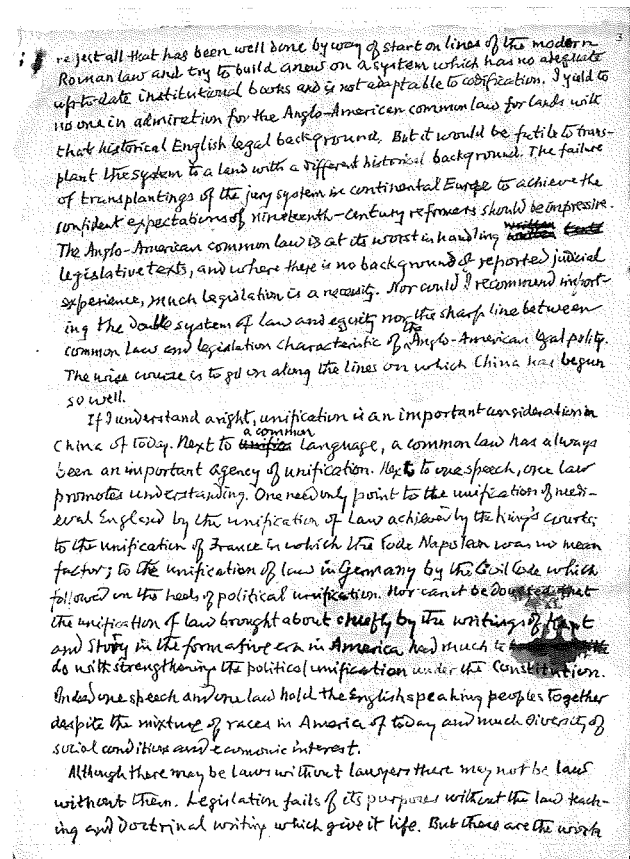 3
reject all that has been well done by way of start on lines of the modern
Roman law and try to build anew on a system which has no adequate
up-to-date institutional books and is not adaptable to codification. I yield to
no one in admiration for the Anglo-American common law for lands with
that historical English legal background. But it would be futile to trans-
plant the system to a land with a different historical background. The failure
of transplantings of the jury system in continental Europe to achieve the
confident expectations of nineteenth-century reformers should be impressive.
The Anglo-American common law is at its worst in handling written texts
legislative texts, and where there is no background of reported judicial
experience, much legislation is a necessity. Nor could I recommend import-
ing the double system of law and equity nor the sharp line between
common law and legislation characteristic of the Anglo-American legal polity.
The wise course is to go on along the lines on which China has begun
so well.
If I understand aright, unification is an important consideration in
China of today. Next to a common language, a common law has always
been an important agency of unification. Next to one speech, one law
promotes understanding. One need only point to the unification of medi-
eval England by the unification of law achieved by the King's courts;
to the unification of France in which the Code Napoleon was no mean
factor; to the unification of law in Germany by the Civil Code which
followed on the heels of political unification. Nor can it be doubted that
the unification of law brought about chiefly by the writings of Kent
and Story in the formative era in America had much to
do with strengthening the political unification under the Constitution.
Indeed one speech and one law hold the English speaking peoples together
despite the mixture of races in America of today and much diversity of
social conditions and economic interest.
Although there may be laws without lawyers there may not be law
without them. Legislation fails of its purposes without the law teach-
ing and doctrinal writing which give it life. But these are the work